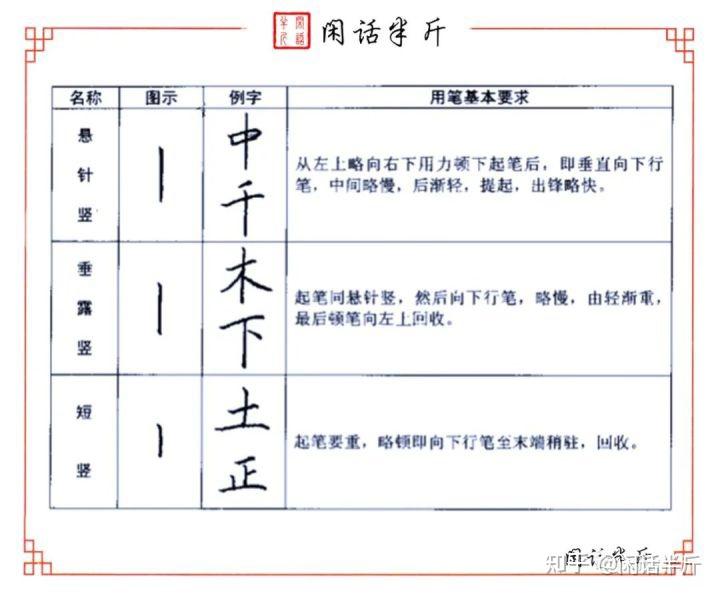 闲话半斤
闲话半斤
名称 图示 例字 用笔基本要求
悬针竖
中
千
从左上略向右下用力顿下起笔后，即垂直向下行
笔，中间略慢，后渐轻，提起，出锋略快。
垂露竖
木
下
起笔同悬针竖，然后向下行笔，略慢，由轻渐重，
最后顿笔向左上回收。
短竖
土
正
起笔要重，略顿即向下行笔至末端稍驻，回收。
闲话半斤
知乎 @闲话半斤